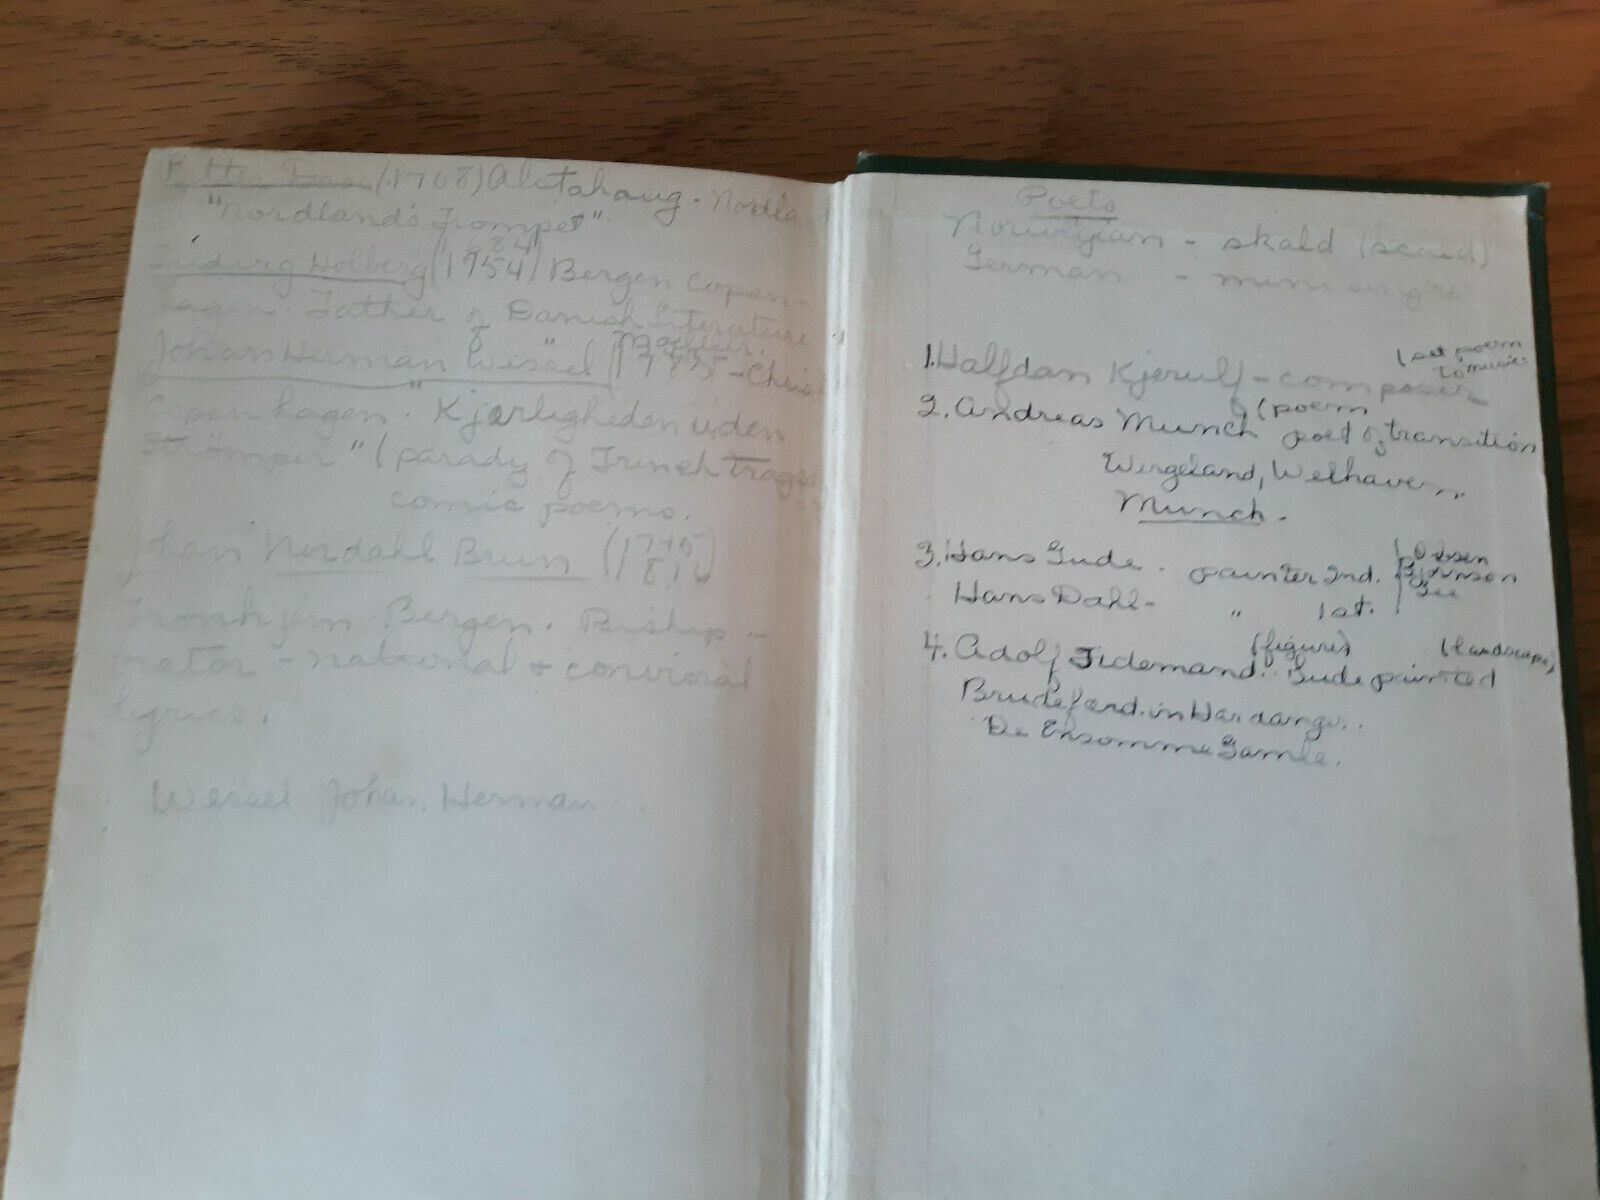 Petter Dass (1708) Alstahaug - Nordla
"Nordlands Trompet"
Ludvig Holberg (1684 1754) Bergen Copen-
hagen. Father of Danish Literature
Johan Herman Wessel 1785 - Chris
Copenhagen. "Kjærligheden uden
Strömper" (parady of French traged
comic poems.
Johan Nordahl Brun (1745
Tronhjem Bergen. Biship -
orator - national & convivial
lyrics.
Wessel Johan Herman
Poets
Norwegian - skald (scald)
German -
(set poem
to music
1. Halfdan Kjerulf - composer
(poem
2. Andreas Munch poet of transition
Wergeland, Welhaven
Munch -
3. Hans Gude - painter 2nd. (Ibsen
Björnson
Hans Dahl - " 1st.
(figures) (landscape)
4. Adolf Tidemand. Gude painted
Brudeferd in Hardanger.
De Ensomme Gamle.